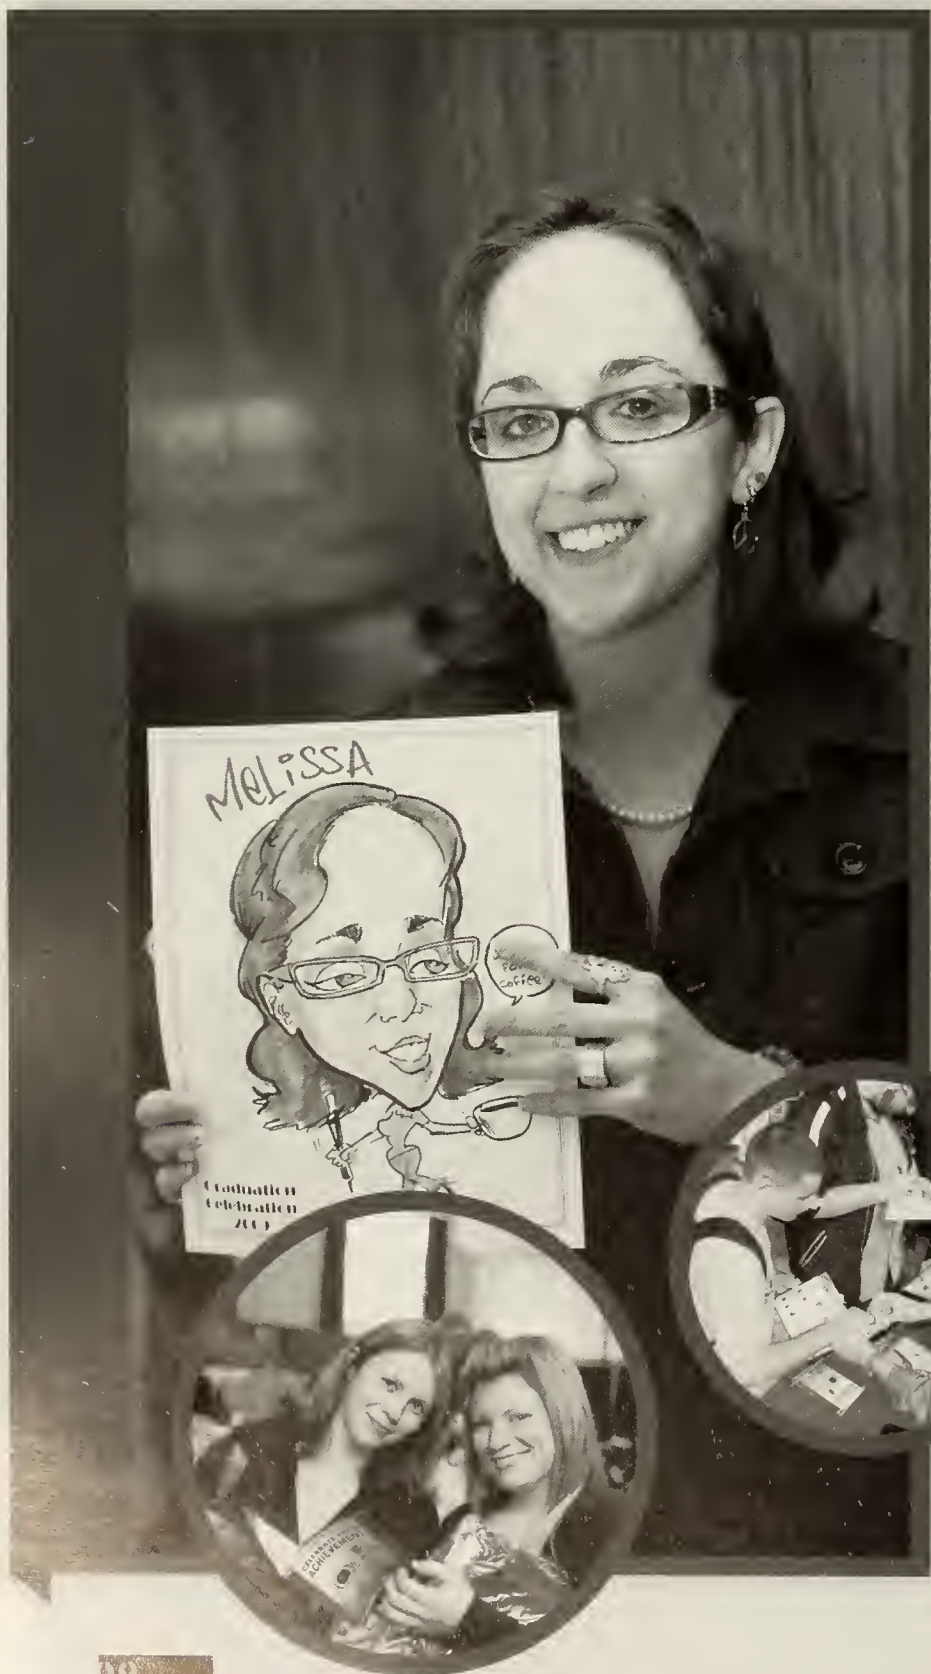 MELiSSA
coffee
Graduation
Celebration
CELEBRATE
ACHIEVEMENT